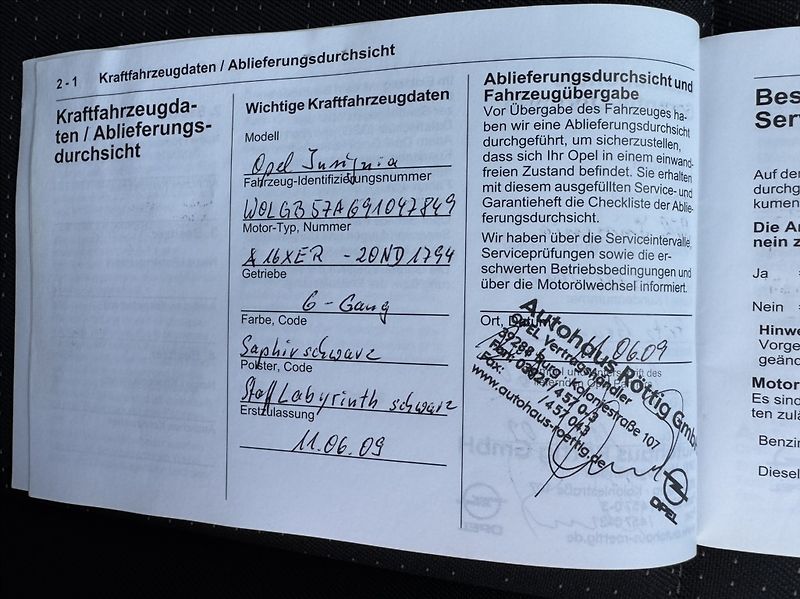 2 - 1 Kraftfahrzeugdaten / Ablieferungsdurchsicht
Kraftfahrzeugda-
ten / Ablieferungs-
durchsicht
Wichtige Kraftfahrzeugdaten
Modell
Opel Insignia
Fahrzeug-Identifizierungsnummer
W0LGB57A691047849
Motor-Typ, Nummer
A16XER - 20ND1794
Getriebe
6 - Gang
Farbe, Code
Saphirschwarz
Polster, Code
Stoff Labyrinth schwarz
Erstzulassung
11.06.09
Ablieferungsdurchsicht und
Fahrzeugübergabe
Vor Übergabe des Fahrzeuges ha-
ben wir eine Ablieferungsdurchsicht
durchgeführt, um sicherzustellen,
dass sich Ihr Opel in einem einwand-
freien Zustand befindet. Sie erhalten
mit diesem ausgefüllten Service- und
Garantieheft die Checkliste der Ablie-
ferungsdurchsicht.
Wir haben über die Serviceintervalle,
Serviceprüfungen sowie die er-
schwerten Betriebsbedingungen und
über die Motorölwechsel informiert.
Ort, Datum
11.06.09
Autohaus Röttig GmbH
OPEL Vertragshändler
39288 Burg, Koloniestraße 107
Fon: 03921/457 0-3
Fax: /457 043
www.autohaus-roettig.de
OPEL
Bes
Ser
Auf de
durchg
kumen
Die Ar
nein z
Ja
Nein
Hinwe
Vorge
geänd
Motor
Es sind
ten zulä
Benzin
Diesel